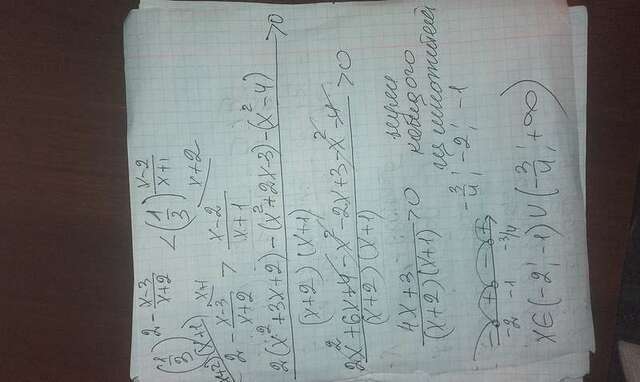 (1/3)^(2 - (x-3)/(x+2)) < (1/3)^((x-2)/(x+1))
(x+2)(x+1) x+1 x+2
2 - (x-3)/(x+2) > (x-2)/(x+1)
(2(x²+3x+2) - (x²+2x-3) - (x²-4))/((x+2)(x+1)) > 0
(2x²+6x+4-x²-2x+3-x²+4)/((x+2)(x+1)) > 0
(4x+3)/((x+2)(x+1)) > 0
нули
каждого
из множителей
-3/4; -2; -1
- + - +
-2 -1 -3/4
x∈(-2; -1)∪(-3/4; +∞)